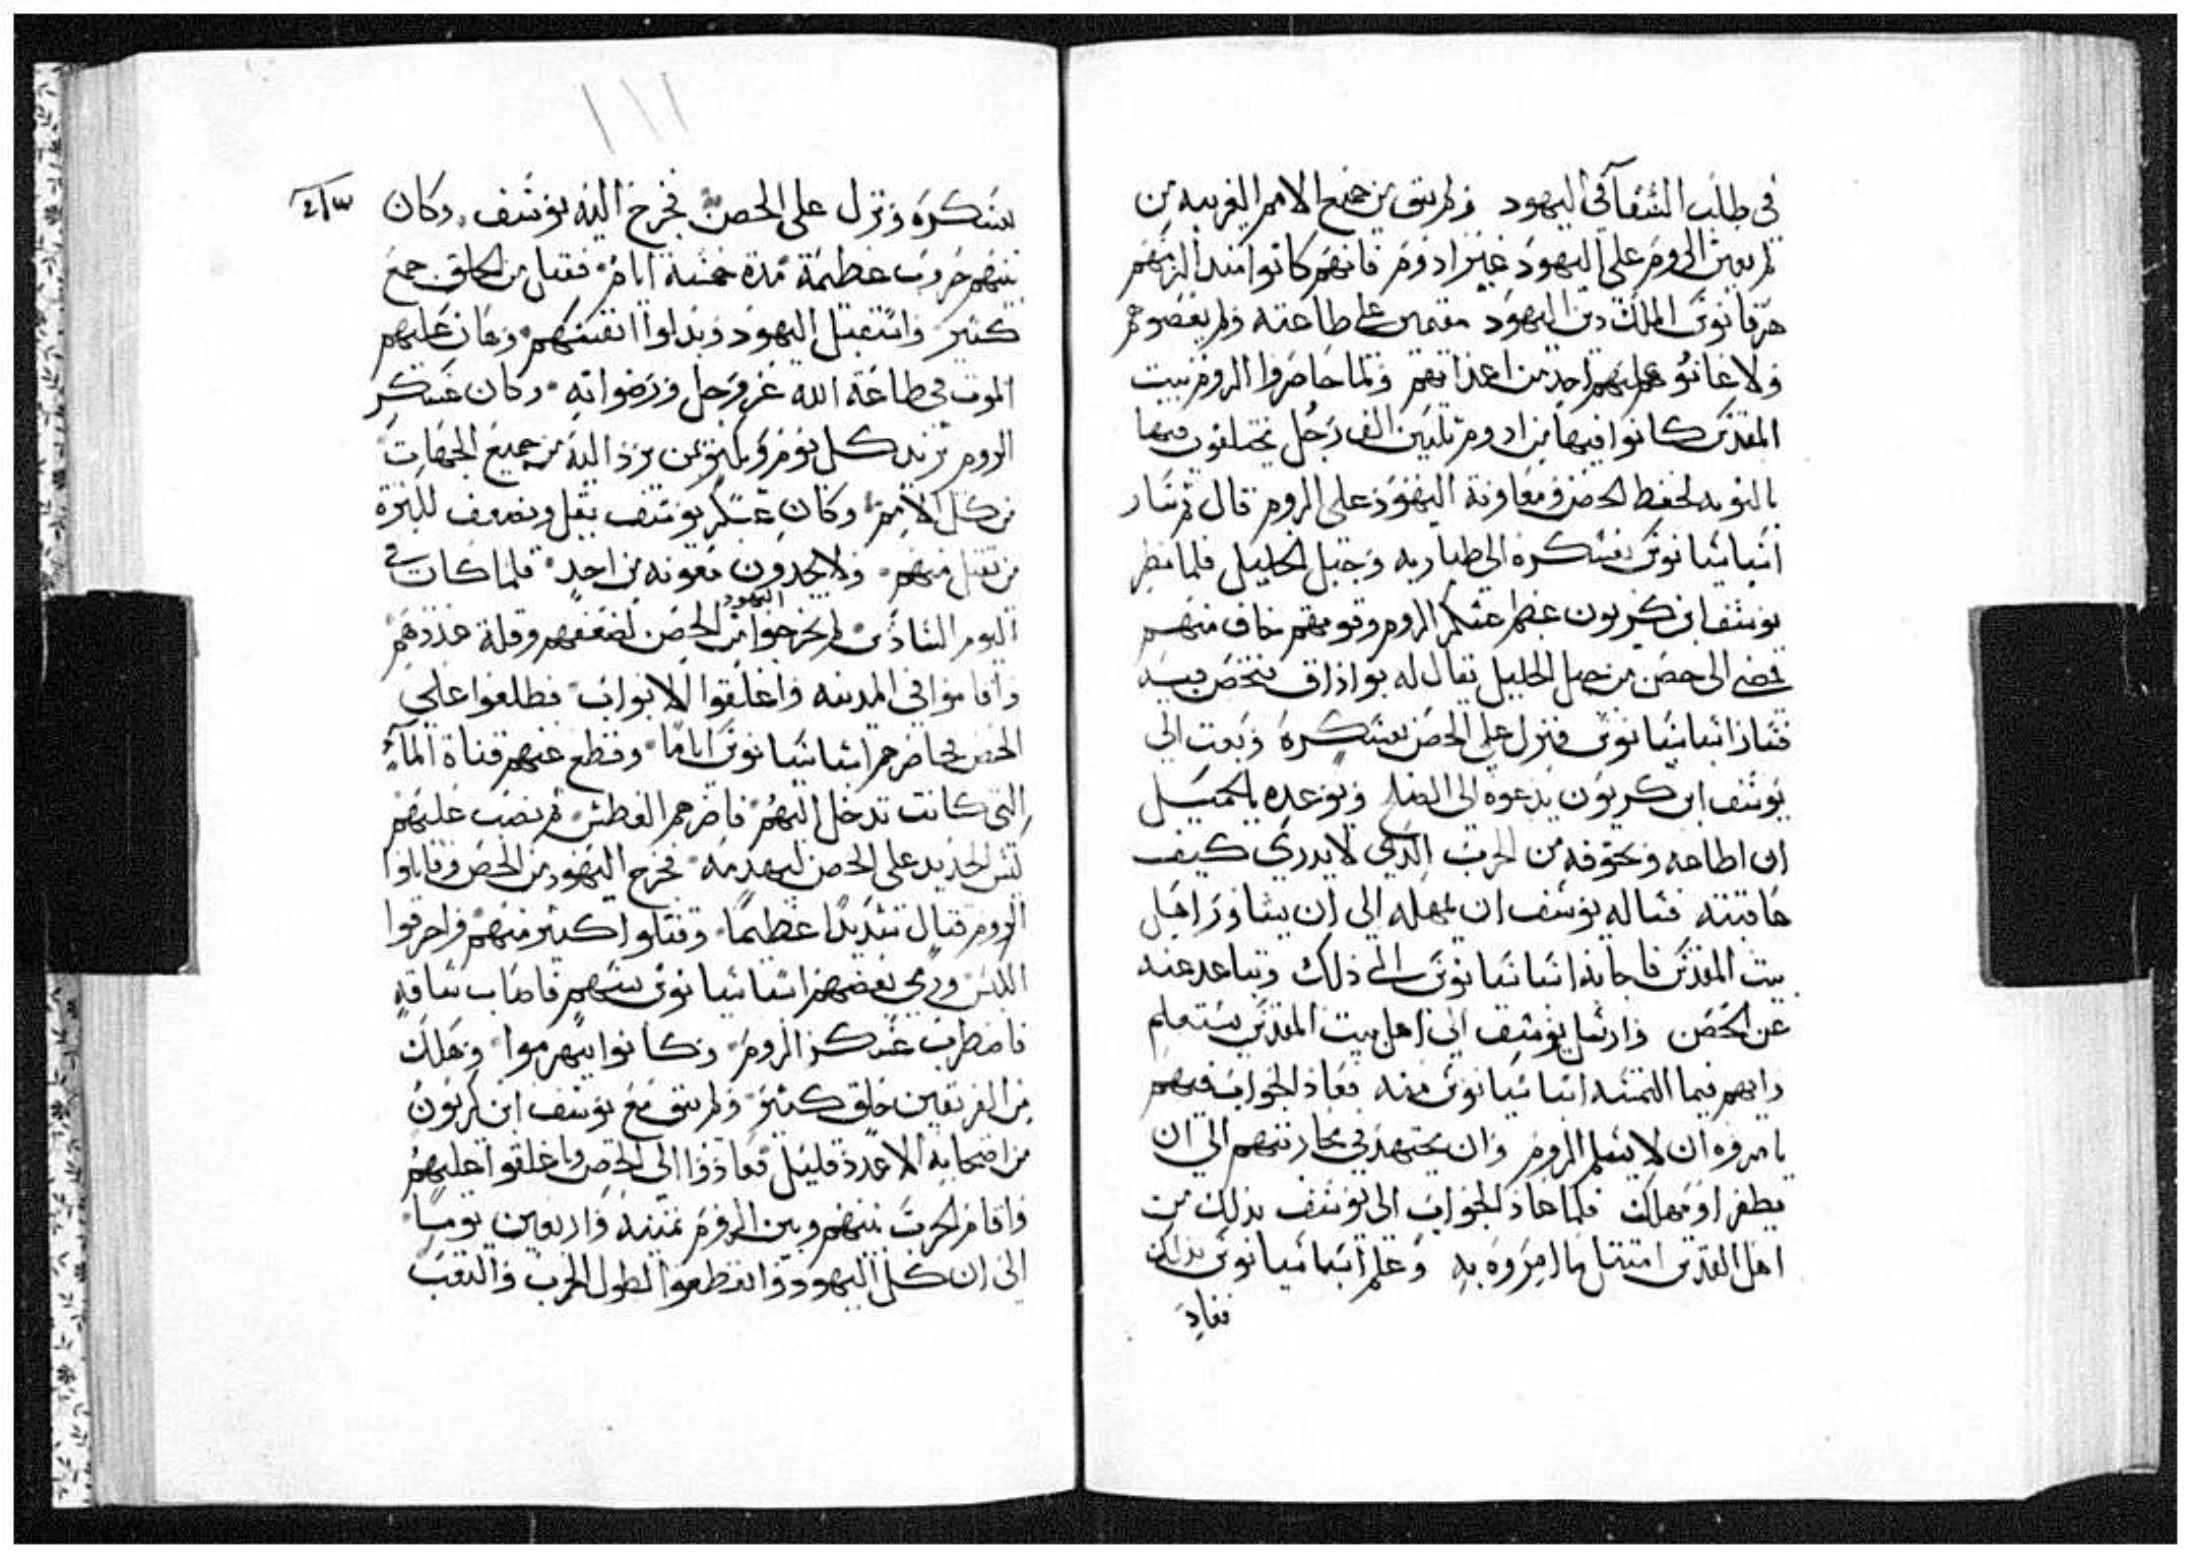 في طلب الشفآ في اليهود ولم يبق من جميع الامم الغريبه من
لم يعين الروم على اليهود غير ادوم فانهم كانوا منذ الزمهم
هرقانوس الملك دين اليهود مقيمين على طاعته ولم يعصوهم
ولا عانو عليهم احد من اعدايهم ولما حاصروا الروم بيت
المقدس كانوا فيها من ادوم ثلثين الف رجل يختلفون فيها
بالنوبه لحفظ الحصن ومعاونة اليهود على الروم قال ثم سار
اسباسيانوس بعسكره الى طباريه وجبل الجليل فلما نظر
يوسف ابن كريون عظم عسكر الروم وقوتهم خاف منهم
فمضى الى حصن من جبل الجليل يقال له يواداف فتحصن فيه
فسار اسباسيانوس فنزل على الحصن بعسكره وبعت الى
يوسف ابن كريون يدعوه الى الصلح ويوعده بالجميل
ان اطاعه ويخوفه من الحرب الذي لا يدري كيف
عاقبته فساله يوسف ان يمهله الى ان يشاور اهل
بيت المقدس فاجابه اسباسيانوس الى ذلك وتباعد عنه
عن الحصن وارسل يوسف الى اهل بيت المقدس يستعلم
رايهم فيما التمسه اسباسيانوس منه فعاد الجواب منهم
يامروه ان لا يسلم للروم وان يجتهد في محاربتهم الى ان
يظفر او يهلك فلما عاد الجواب الى يوسف بذلك من
اهل القدس امتثل ما امروه به وعلم اسباسيانوس بذلك
فعاد
بعسكره ونزل على الحصن فخرج اليه يوسف وكان
بينهم حروب عظيمة مدة خمسة ايام فقتل من الخلق جمع
كثير واستقتل اليهود وبدلوا انفسهم وهان عليهم
الموت في طاعة الله عز وجل ورضوانه وكان عسكر
الروم يزيد كل يوم ويكثر بمن يرد اليه من جميع الجهات
من كل الامم وكان عسكر يوسف يقل ويضعف لكثرة
من يقتل منهم ولا يجدون معونه من احد فلما كان في
اليوم السادس لم يخرجوا اليهود من الحصن لضعفهم وقلة عددهم
واقاموا في المدينه واغلقوا الابواب فطلعوا على
الحصن فحاصرهم اسباسيانوس اياما وقطع عنهم قناة المآء
التي كانت تدخل اليهم فاضرهم العطش ثم نصب عليهم
كبش الحديد على الحصن ليهدمه فخرج اليهود من الحصن وقاتلوا
الروم قتال شديدا عظيما وقتلوا كثير منهم واحرقوا
الكبش ورمي بعضهم اسباسيانوس بسهم فاصاب ساقه
فاضطرب عسكر الروم وكانوا ينهزموا وهلك
من الفريقين خلق كثير ولم يبق مع يوسف ابن كريون
من اصحابه الا عدد قليل فعادوا الى الحصن واغلقوا عليهم
واقام الحرب بينهم وبين الروم تمنيه واربعين يوما
الى ان كل اليهود وانقطعوا لطول الحرب والتعب